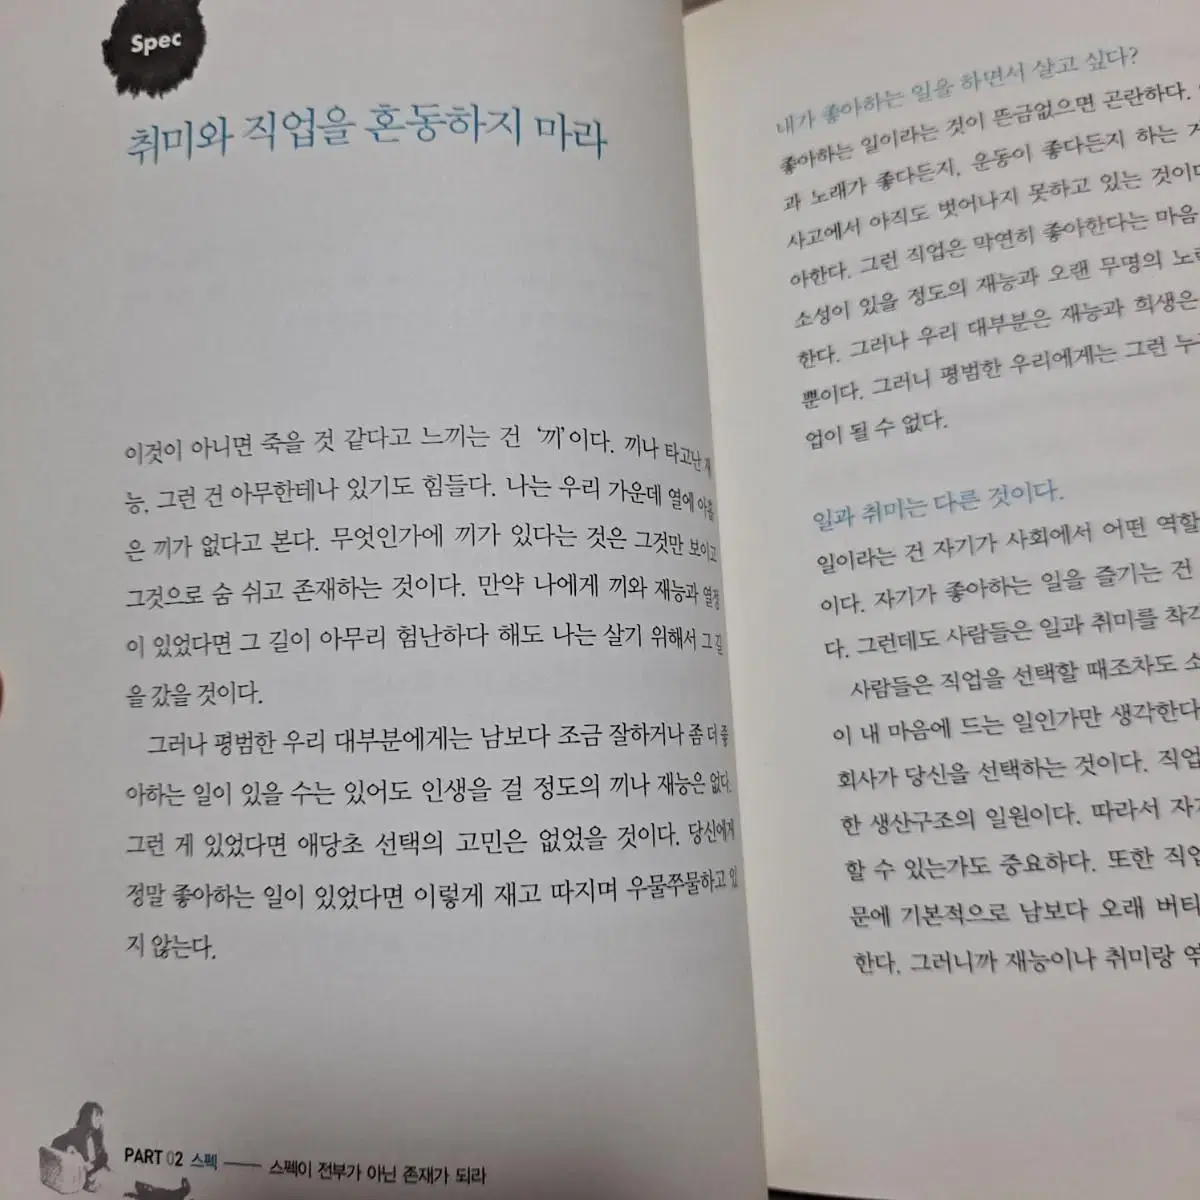 Spec
취미와 직업을 혼동하지 마라
이것이 아니면 죽을 것 같다고 느끼는 건 ‘끼’이다. 끼나 타고난 재
능, 그런 건 아무한테나 있기도 힘들다. 나는 우리 가운데 열에 아홉
은 끼가 없다고 본다. 무엇인가에 끼가 있다는 것은 그것만 보이고
그것으로 숨 쉬고 존재하는 것이다. 만약 나에게 끼와 재능과 열정
이 있었다면 그 길이 아무리 험난하다 해도 나는 살기 위해서 그 길
을 갔을 것이다.
그러나 평범한 우리 대부분에게는 남보다 조금 잘하거나 좀 더 좋
아하는 일이 있을 수는 있어도 인생을 걸 정도의 끼나 재능은 없다.
그런 게 있었다면 애당초 선택의 고민은 없었을 것이다. 당신에게
정말 좋아하는 일이 있었다면 이렇게 재고 따지며 우물쭈물하고 있
지 않는다.
PART 02 스펙 스펙이 전부가 아닌 존재가 되라
내가 좋아하는 일을 하면서 살고 싶다?
좋아하는 일이라는 것이 뜬금없으면 곤란하다.
과 노래가 좋다든지, 운동이 좋다든지 하는
사고에서 아직도 벗어나지 못하고 있는 것이다
아한다. 그런 직업은 막연히 좋아한다는 마음
소성이 있을 정도의 재능과 오랜 무명의
한다. 그러나 우리 대부분은 재능과 희생은
뿐이다. 그러니 평범한 우리에게는 그런
업이 될 수 없다.
일과 취미는 다른 것이다.
일이라는 건 자기가 사회에서 어떤 역할
이다. 자기가 좋아하는 일을 즐기는 건
다. 그런데도 사람들은 일과 취미를 착각
사람들은 직업을 선택할 때조차도 소
이 내 마음에 드는 일인가만 생각한다
회사가 당신을 선택하는 것이다. 직업
한 생산구조의 일원이다. 따라서 자
할 수 있는가도 중요하다. 또한 직업
문에 기본적으로 남보다 오래 버티
한다. 그러니까 재능이나 취미랑